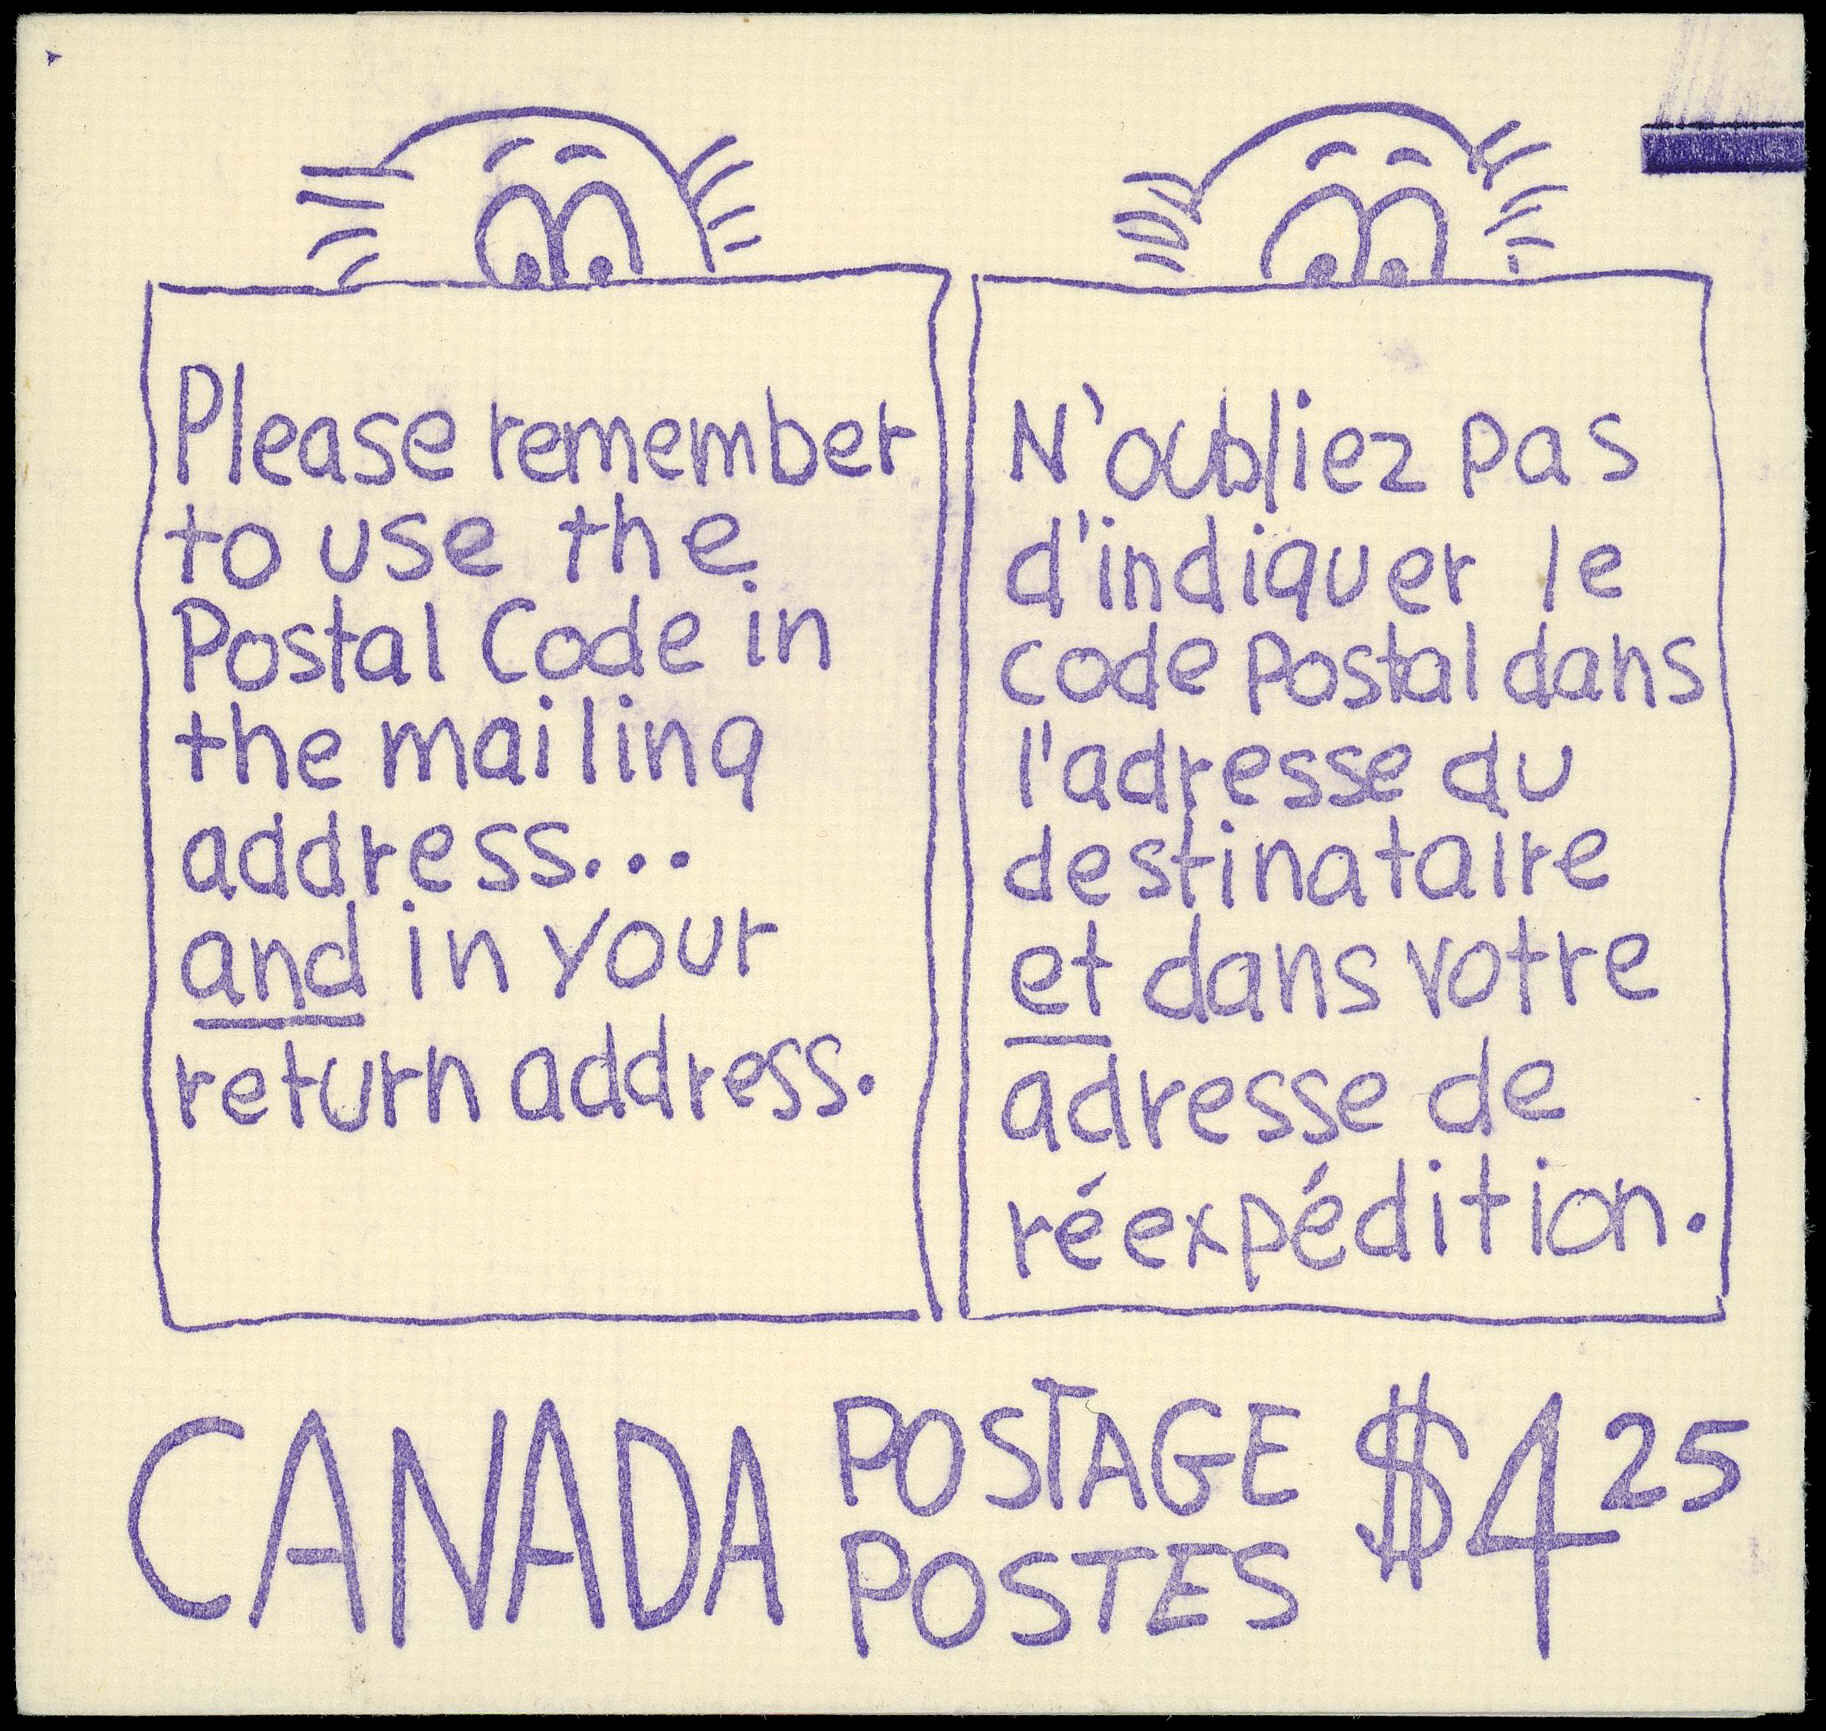 Please remember
to use the
Postal Code in
the mailing
address...
and in your
return address.
N'oubliez pas
d'indiquer le
code postal dans
l'adresse du
destinataire
et dans votre
adresse de
réexpédition.
CANADA POSTAGE POSTES $4 25